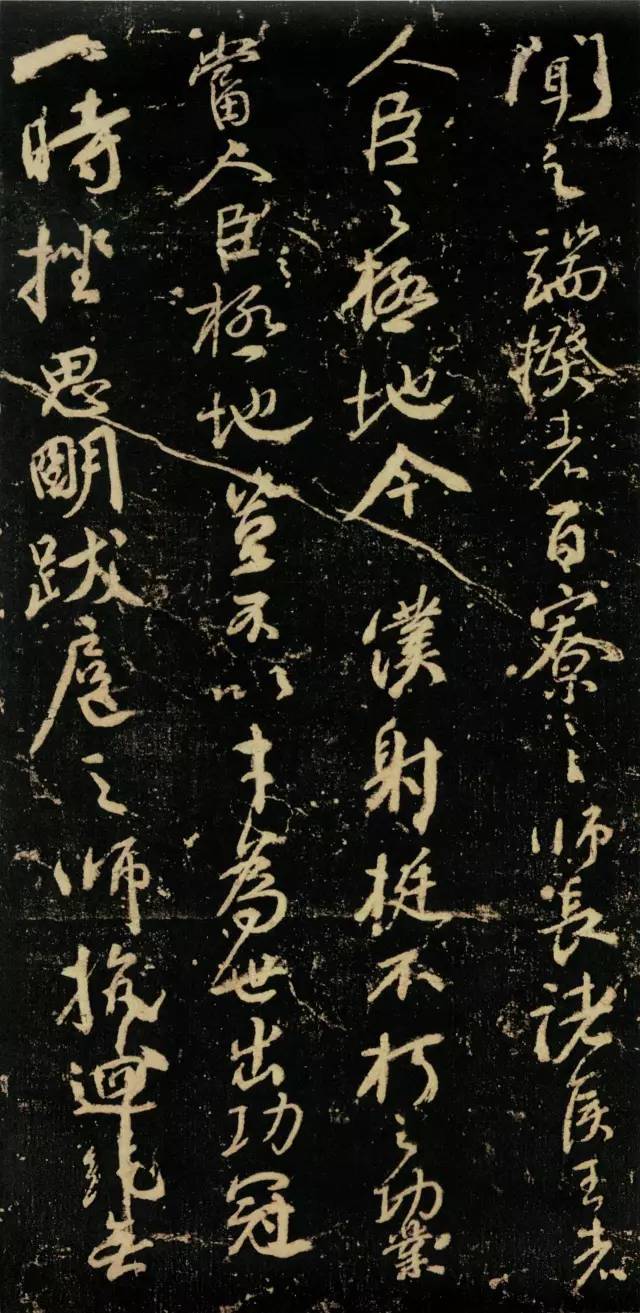 聞之端揆者百寮之师長諸侯王者
人臣之極地今僕射挺不朽之功業
當人臣之極地豈不以才為世出功冠
一時挫思明跋扈之师抗迴紇無